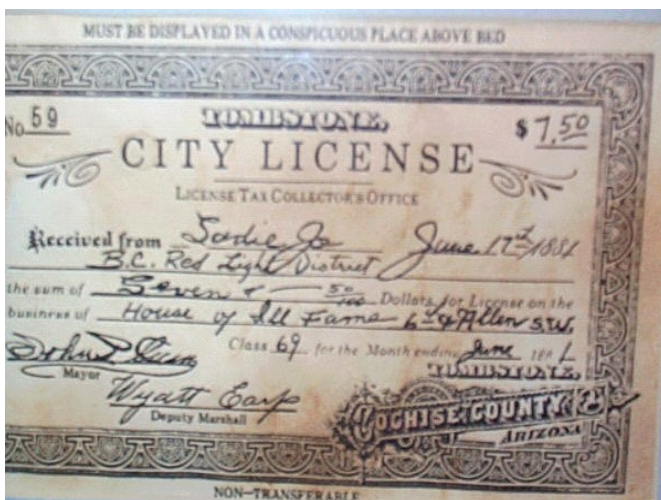 MUST BE DISPLAYED IN A CONSPICUOUS PLACE ABOVE BED
No 59
TOMBSTONE,
$ 7.50
CITY LICENSE
LICENSE TAX COLLECTOR'S OFFICE
Received from Sadie Jo June 17th 1881
B.C. Red Light District
the sum of Seven & 50/100 Dollars, for License on the
business of House of Ill Fame 6th & Allen S.W.
Class 69 for the Month ending June 1881
Mayor
TOMBSTONE,
Wyatt Earp
Deputy Marshall
COCHISE COUNTY
ARIZONA
NON-TRANSFERABLE